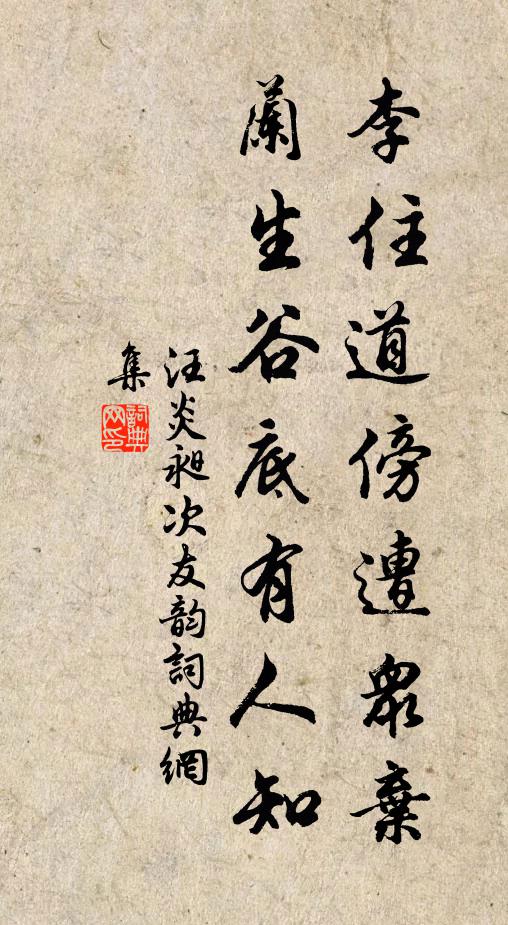 李住道傍遭眾棄
蘭生谷底有人知
汪炎昶次友韵詞典網
集
詞典網印